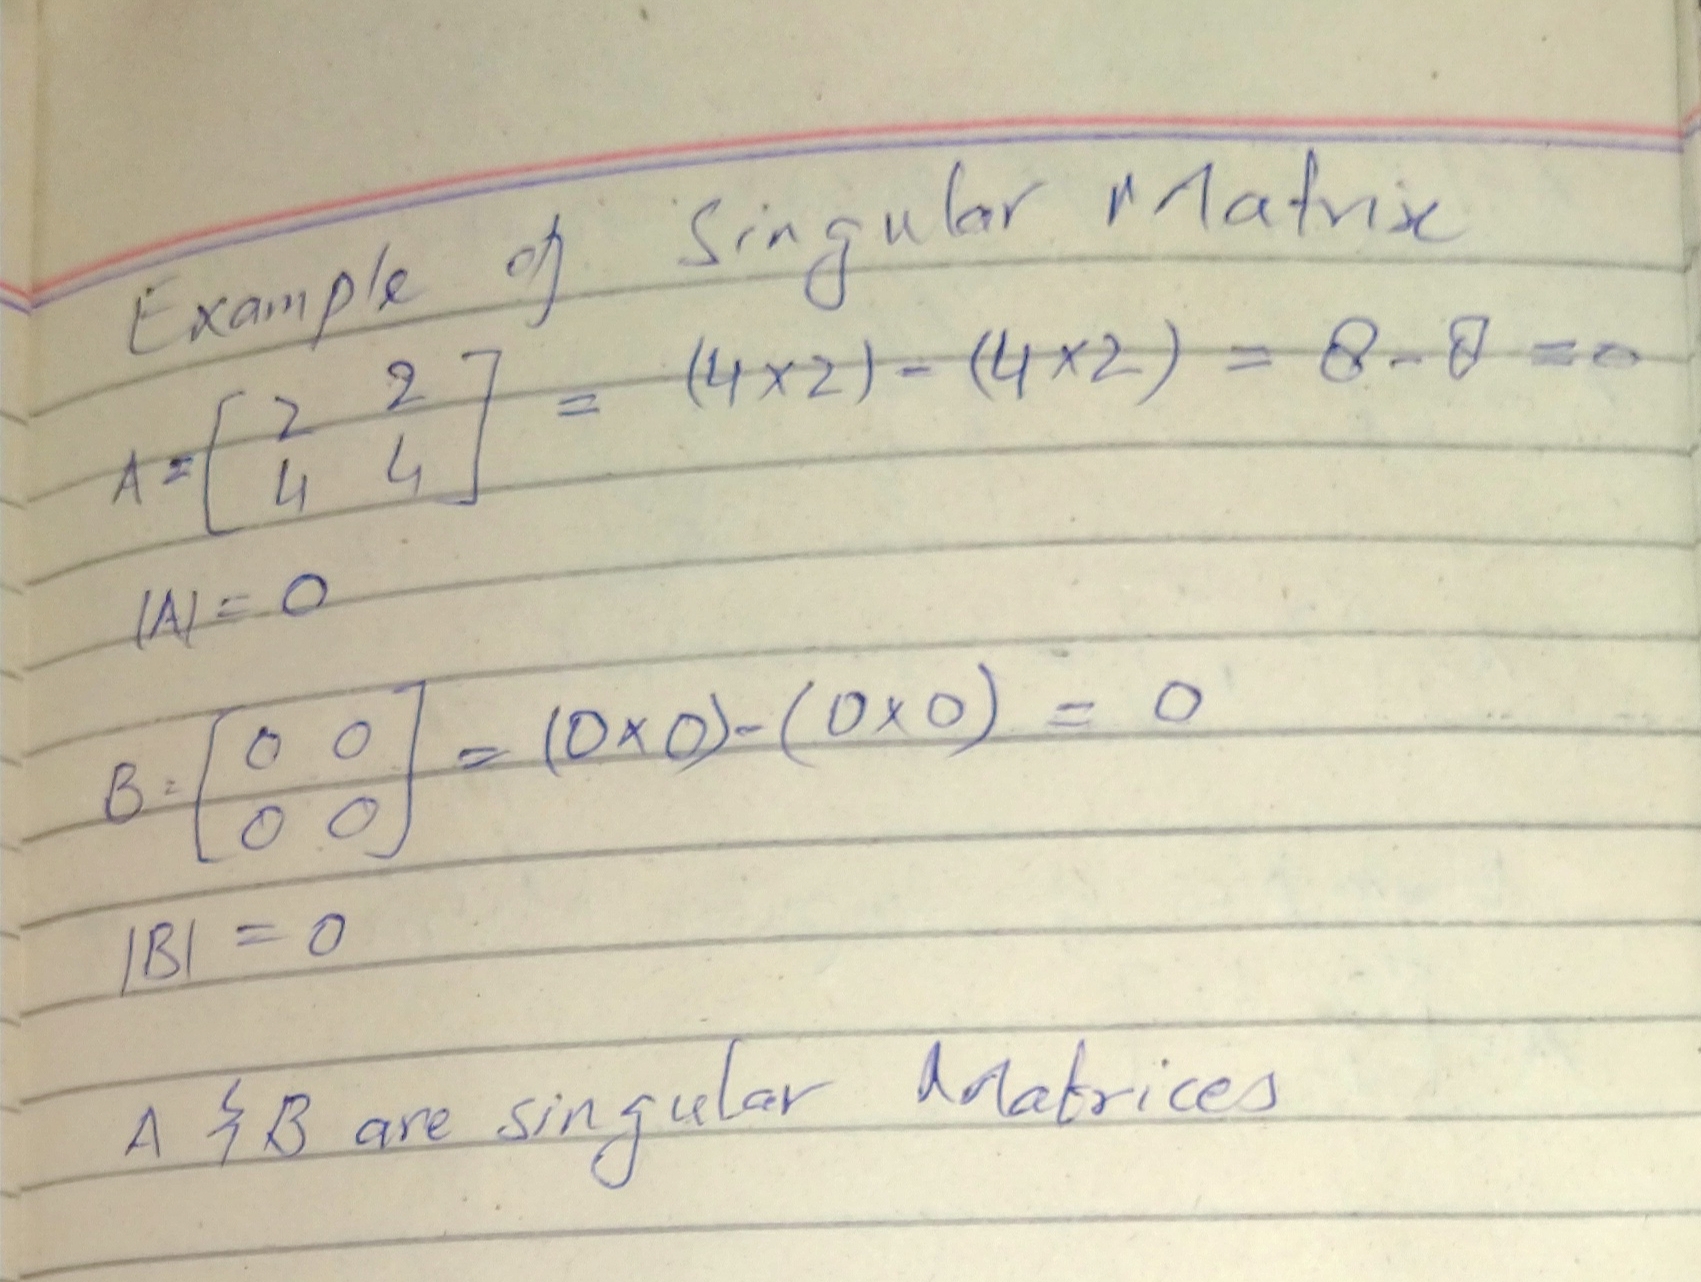 Example of Singular Matrix
A = [ 2 2 ] = (4×2) - (4×2) = 8 - 8 = 0
4 4
|A| = 0
B = [ 0 0 ] = (0×0) - (0×0) = 0
0 0
|B| = 0
A & B are singular Matrices